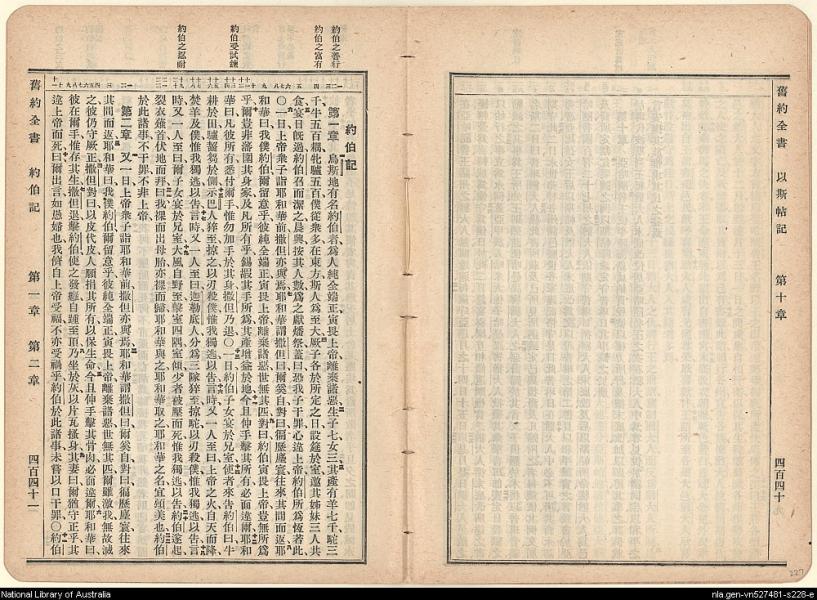 舊約全書 以斯帖記 第十章 四百四十
約伯之善行
約伯之富有
約伯受試鍊
約伯之忍耐
約伯記
第一章 烏斯地有名約伯者爲人純全端正寅畏上帝離棄諸惡生子七女三其產有羊七千駝三
千牛五百耦牝驢五百僕從衆多在東方斯人爲至大厥子各於所定之日設筵於室邀其姊妹三人共
食宴日旣過約伯召而潔之晨興按其人數爲之獻燔祭蓋曰恐我子干罪心違上帝約伯所爲恆若此
〇一日上帝衆子詣耶和華前撒但亦與焉耶和華謂撒但曰爾奚自對曰徧歷塵寰往來其間而返耶
和華曰我僕約伯爾留意乎彼純全端正寅畏上帝離棄諸惡世無其匹對曰約伯寅畏上帝豈無所爲
乎爾豈非藩圍其身家及凡所有乎錫嘏其手所爲其產增益於地今且伸手擊其所有必面違爾耶和
華曰凡彼所有悉付爾手惟勿加手於其身撒但乃退〇一日約伯子女宴於兄室使者來告約伯曰牛
耕於田驢齧芻於側示巴人猝至掠之以刃殺僕惟我獨逃以告言時又一人至曰上帝之火自天而降
焚羊及僕惟我獨逃以告言時又一人至曰迦勒底人分爲三隊猝至掠駝以刃殺僕惟我獨逃以告言
時又一人至曰爾子女宴於兄室大風自野至擊室四隅室傾少者被壓而死惟我獨逃以告約伯遂起
裂衣薙首伏地而拜曰我裸而出母胎亦裸而歸耶和華與之耶和華取之耶和華之名宜頌美也約伯
於此諸事不干罪不非上帝
第二章 又一日上帝衆子詣耶和華前撒但亦與焉耶和華謂撒但曰爾奚自對曰徧歷塵寰往來
其間而返耶和華曰我僕約伯爾留意乎彼純全端正寅畏上帝離棄諸惡世無其匹爾雖激我無故滅
之彼仍守厥正撒但對曰以皮代皮人願捐其所有以保生命今且伸手擊其骨肉必面違爾耶和華曰
彼在爾手惟存其生撒但退擊約伯使之發瘡自踵至頂乃坐於灰以片瓦搔身其妻曰爾猶守正乎其
違上帝而死曰爾出言如愚婦也我儕自上帝受福不亦受禍乎約伯於此諸事未嘗以口干罪〇約伯
舊約全書 約伯記 第一章 第二章 四百四十一
227
National Library of Australia
nla.gen-vn527481-s228-e